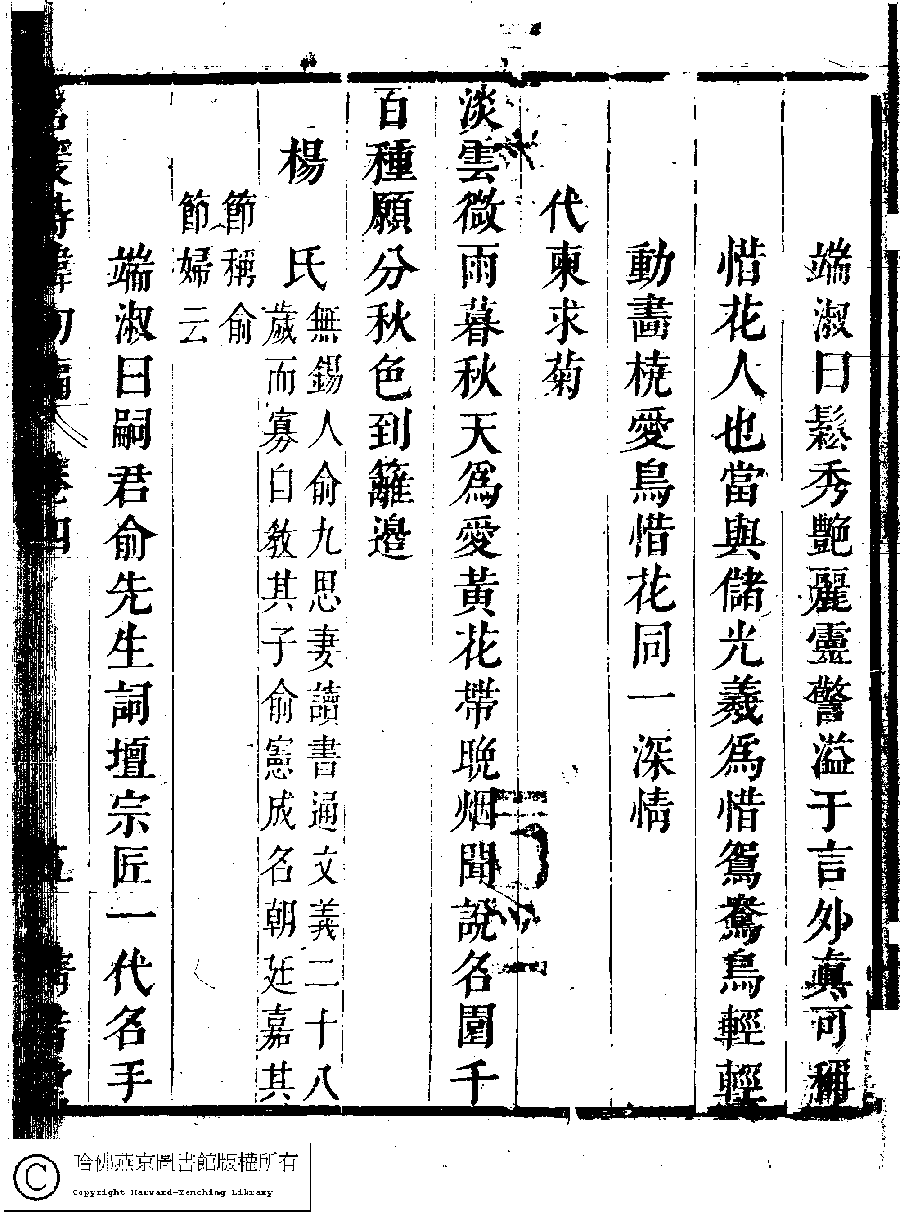 端淑曰鬆秀艷麗靈警溢于言外真可稱
惜花人也當與儲光羲為惜鴛鴦鳥輕輕
動畵橈愛鳥惜花同一深情
代柬求菊
淡雲微雨暮秋天為愛黃花帶晚烟聞說名園千
百種願分秋色到籬邉
楊氏
無錫人俞九思妻讀書通文義二十八
歲而寡自敎其子俞憲成名朝廷嘉其
節稱俞
節婦云
端淑曰嗣君俞先生詞壇宗匠一代名手
名媛詩緯初編
卷四
哈佛燕京圖書館版權所有
Copyright Harvard-Yenching Library